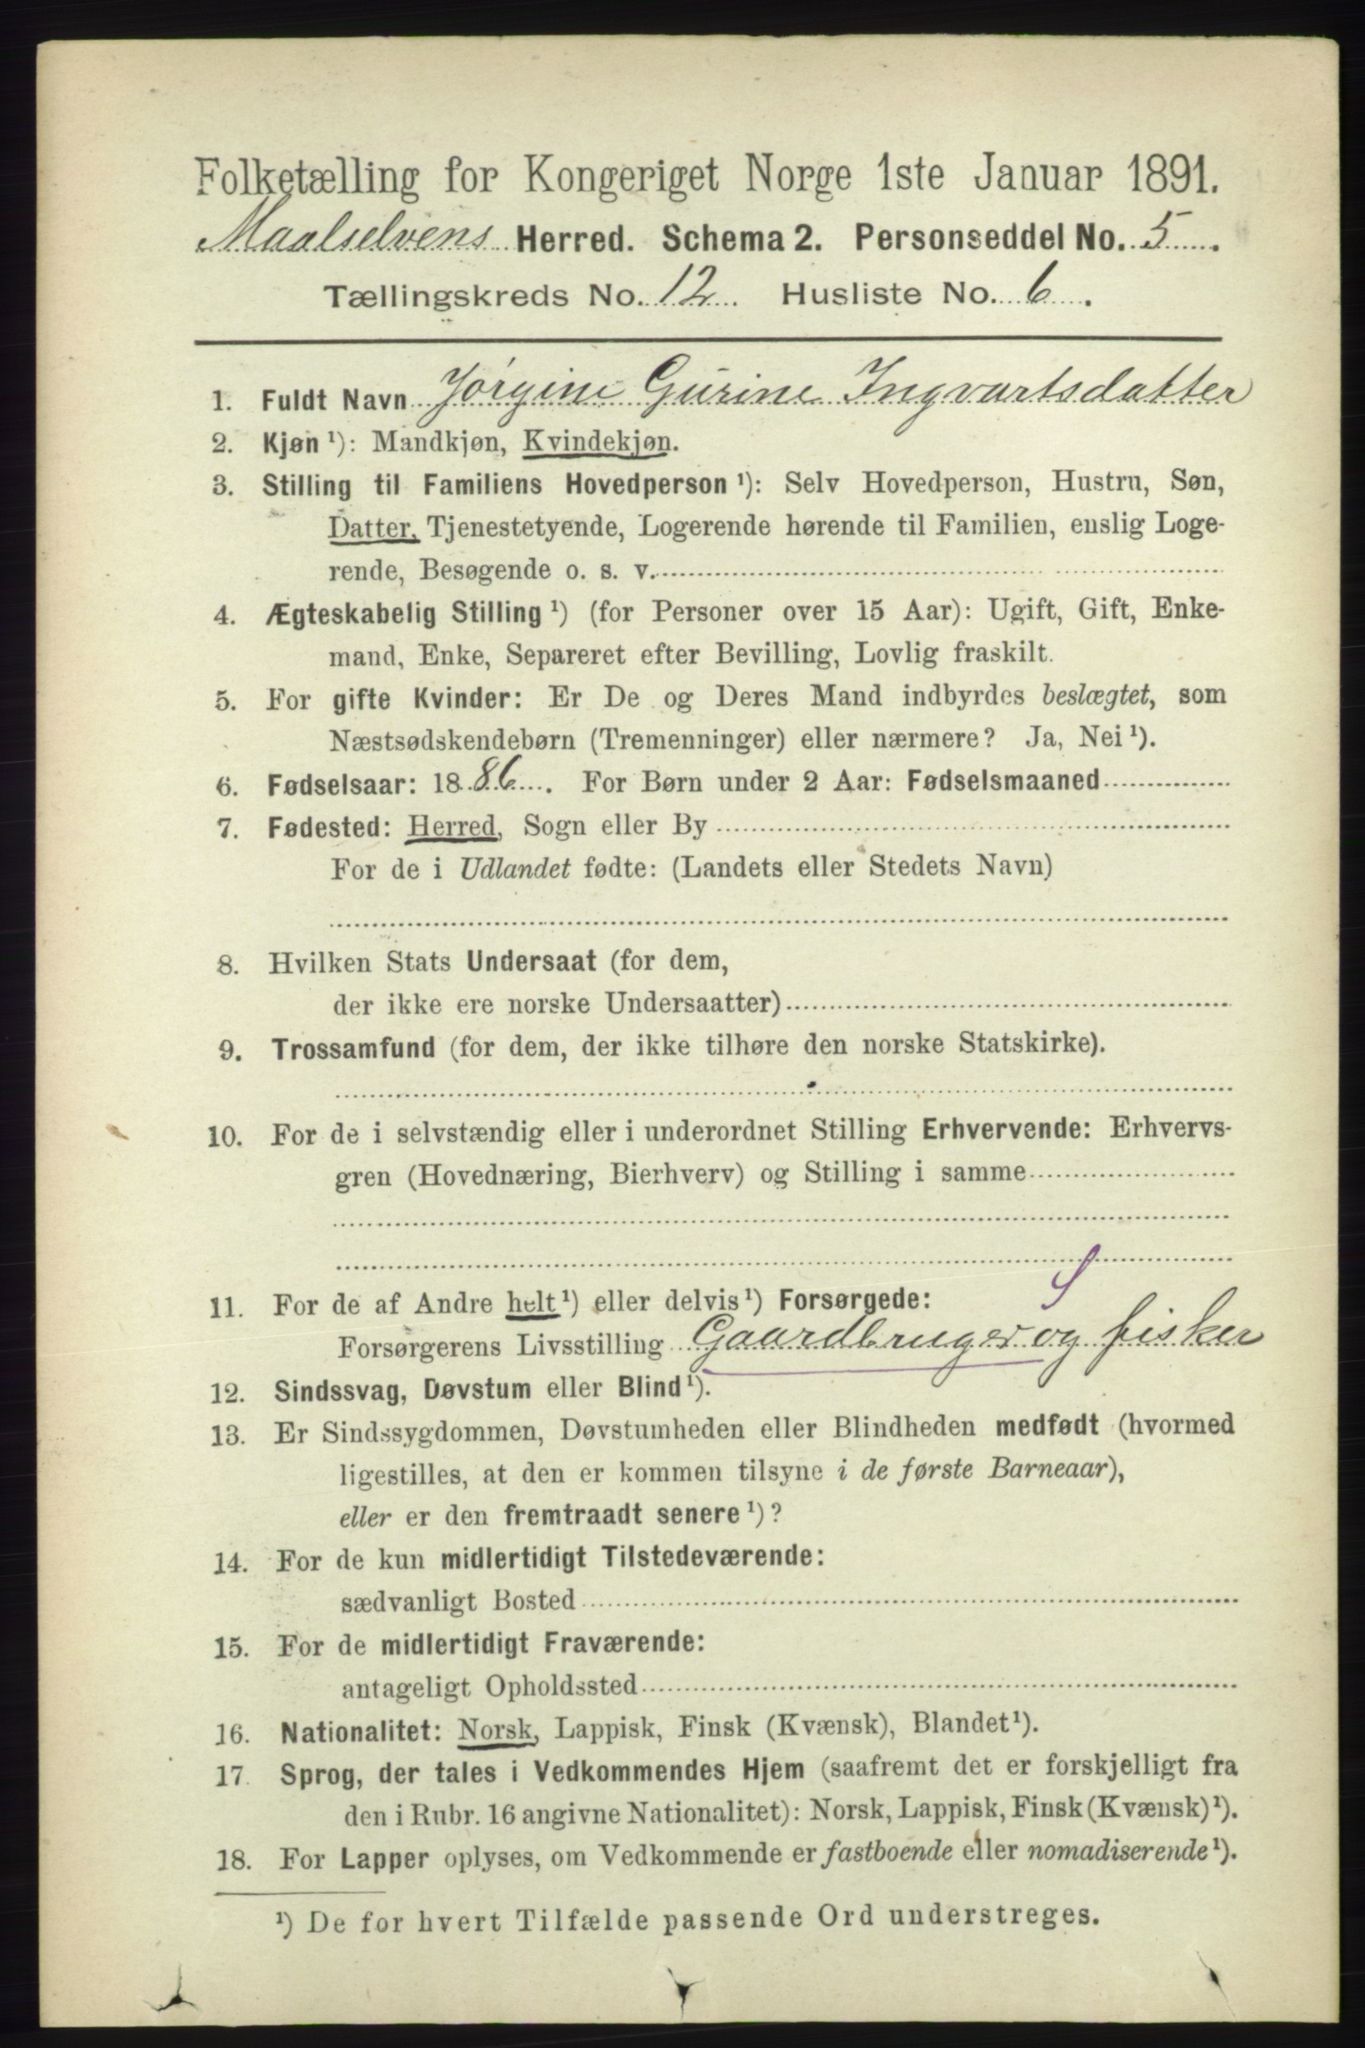 Folketælling for Kongeriget Norge 1ste Januar 1891.
Maalselvens Herred. Schema 2. Personseddel No. 5.
Tællingskreds No. 12. Husliste No. 6.
1. Fuldt Navn Jørgine Gurine Ingvartsdatter
2. Kjøn ¹): Mandkjøn, Kvindekjøn.
3. Stilling til Familiens Hovedperson ¹): Selv Hovedperson, Hustru, Søn,
Datter, Tjenestetyende, Logerende hørende til Familien, enslig Loge-
rende, Besøgende o. s. v.
4. Ægteskabelig Stilling ¹) (for Personer over 15 Aar): Ugift, Gift, Enke-
mand, Enke, Separeret efter Bevilling, Lovlig fraskilt.
5. For gifte Kvinder: Er De og Deres Mand indbyrdes beslægtet, som
Næstsødskendebørn (Tremenninger) eller nærmere? Ja, Nei ¹).
6. Fødselsaar: 1886. For Børn under 2 Aar: Fødselsmaaned
7. Fødested: Herred, Sogn eller By
For de i Udlandet fødte: (Landets eller Stedets Navn)
8. Hvilken Stats Undersaat (for dem,
der ikke ere norske Undersaatter)
9. Trossamfund (for dem, der ikke tilhøre den norske Statskirke).
10. For de i selvstændig eller i underordnet Stilling Erhvervende: Erhvervs-
gren (Hovednæring, Bierhverv) og Stilling i samme
11. For de af Andre helt ¹) eller delvis ¹) Forsørgede: S
Forsørgerens Livsstilling Gaardbruger og fisker
12. Sindssvag, Døvstum eller Blind ¹).
13. Er Sindssygdommen, Døvstumheden eller Blindheden medfødt (hvormed
ligestilles, at den er kommen tilsyne i de første Barneaar),
eller er den fremtraadt senere ¹)?
14. For de kun midlertidigt Tilstedeværende:
sædvanligt Bosted
15. For de midlertidigt Fraværende:
antageligt Opholdssted
16. Nationalitet: Norsk, Lappisk, Finsk (Kvænsk), Blandet ¹).
17. Sprog, der tales i Vedkommendes Hjem (saafremt det er forskjelligt fra
den i Rubr. 16 angivne Nationalitet): Norsk, Lappisk, Finsk (Kvænsk) ¹).
18. For Lapper oplyses, om Vedkommende er fastboende eller nomadiserende ¹).
¹) De for hvert Tilfælde passende Ord understreges.